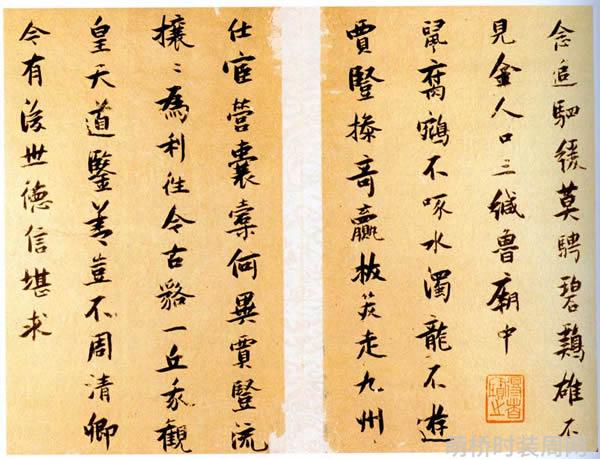 念追駟緩莫騁碧鷄雄不
見金人口三緘魯廟中
鼠腐鵷不啄水濁龍不遊
賈豎操奇贏挾筴走九州
仕宦營囊橐何異賈豎流
攘〻為利往今古貉一丘我觀
皇天道鑒善豈不周清卿
今有後世德信堪求
时装周网